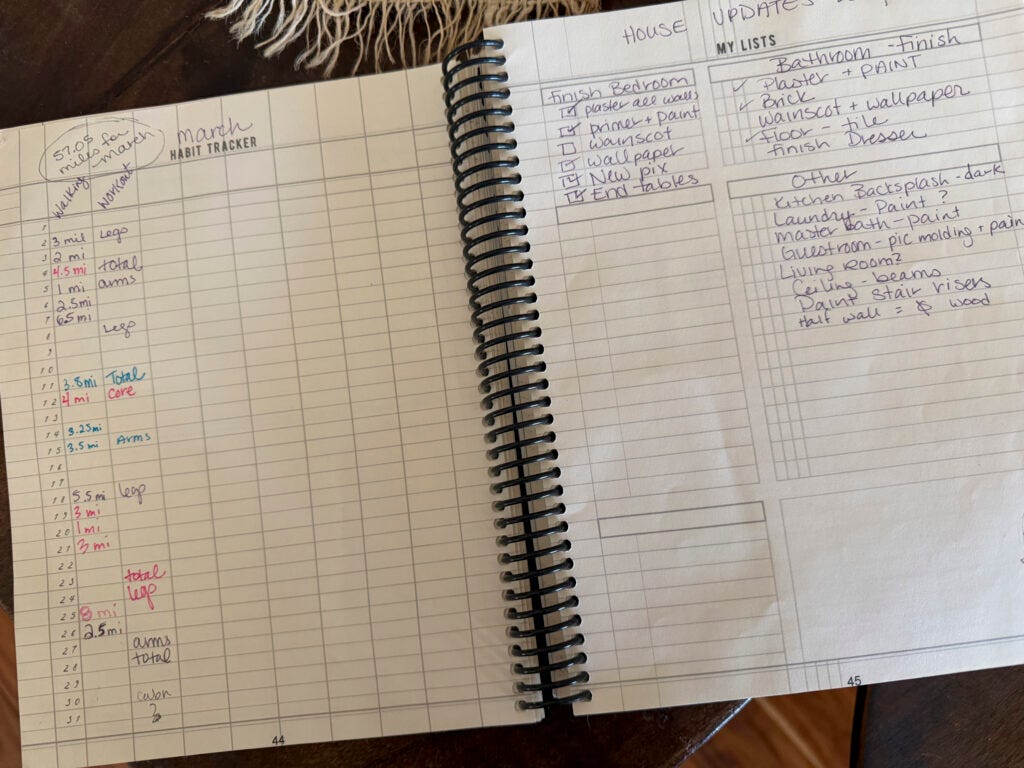 57.05
miles for
march
march
HABIT TRACKER
Walking
Workout
1
2 3 mil legs
3 2 mi
4 4.5 mi total
5 1 mi arms
6 2.5 mi
7 6.5 mi
8 legs
9
10
11 3.8 mi Total
12 4 mi core
13
14 3.25 mi
15 3.5 mi Arms
16
17
18 5.5 mi legs
19 3 mi
20 1 mi
21 3 mi
22
23 total
24 legs
25 8 mi
26 2.5 mi
27 arms
28 total
29
30
31
44
HOUSE UPDATES
MY LISTS
Finish Bedroom
plaster all walls
primer + paint
wainscot
Wallpaper
New pix
End tables
Bathroom - finish
Plaster + PAINT
Brick
Wainscot + wallpaper
Floor - tile
finish Dresser
Other
Kitchen Backsplash - dark
Laundry - Paint ?
master bath - paint
Guestroom - pic molding + pain
Living Room?
Ceiling - beams
Paint stair risers
Half wall = wood
45